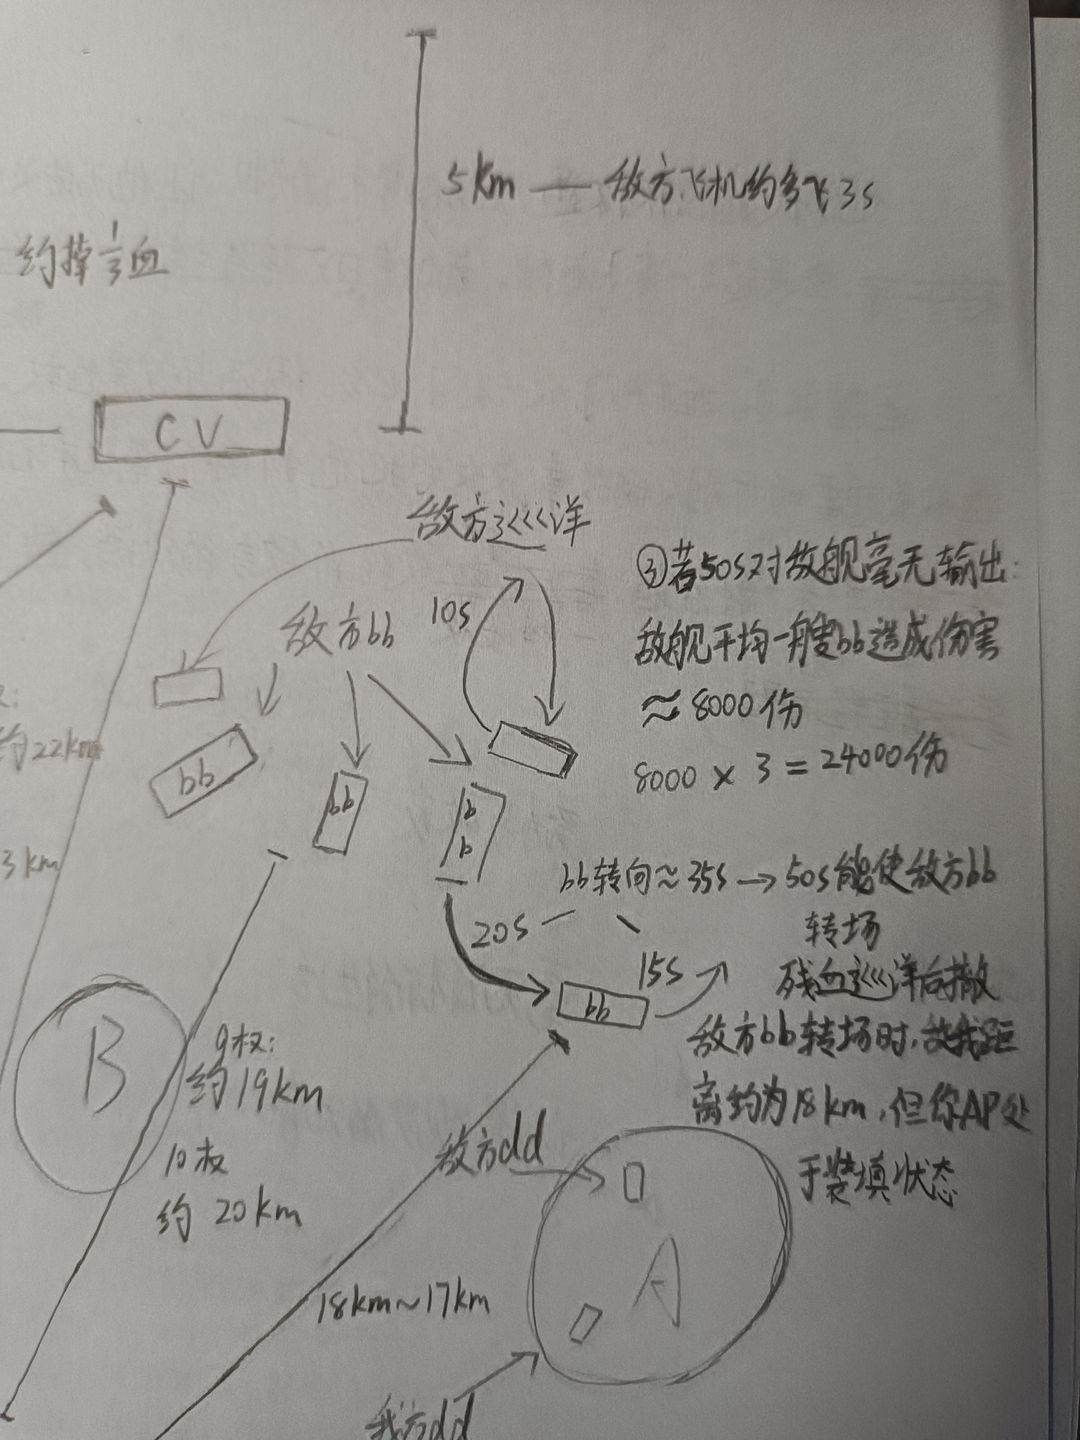 5km — 敌方飞机约多飞3s
约掉1/3血
CV
敌方巡洋
10s
敌方bb
③若50s对敌舰毫无输出:
敌舰平均一艘bb造成伤害
≈8000份
8000 × 3 = 24000份
约22km
bb
bb
bb
3km
bb转向≈35s → 50s能使敌方bb
转场
20s
15s
残血巡洋后撤
bb
敌方bb转场时,敌我距
离约为18km,但你AP处
于装填状态
B
9权:
约19km
10权
约20km
敌方dd
A
18km~17km
我方dd